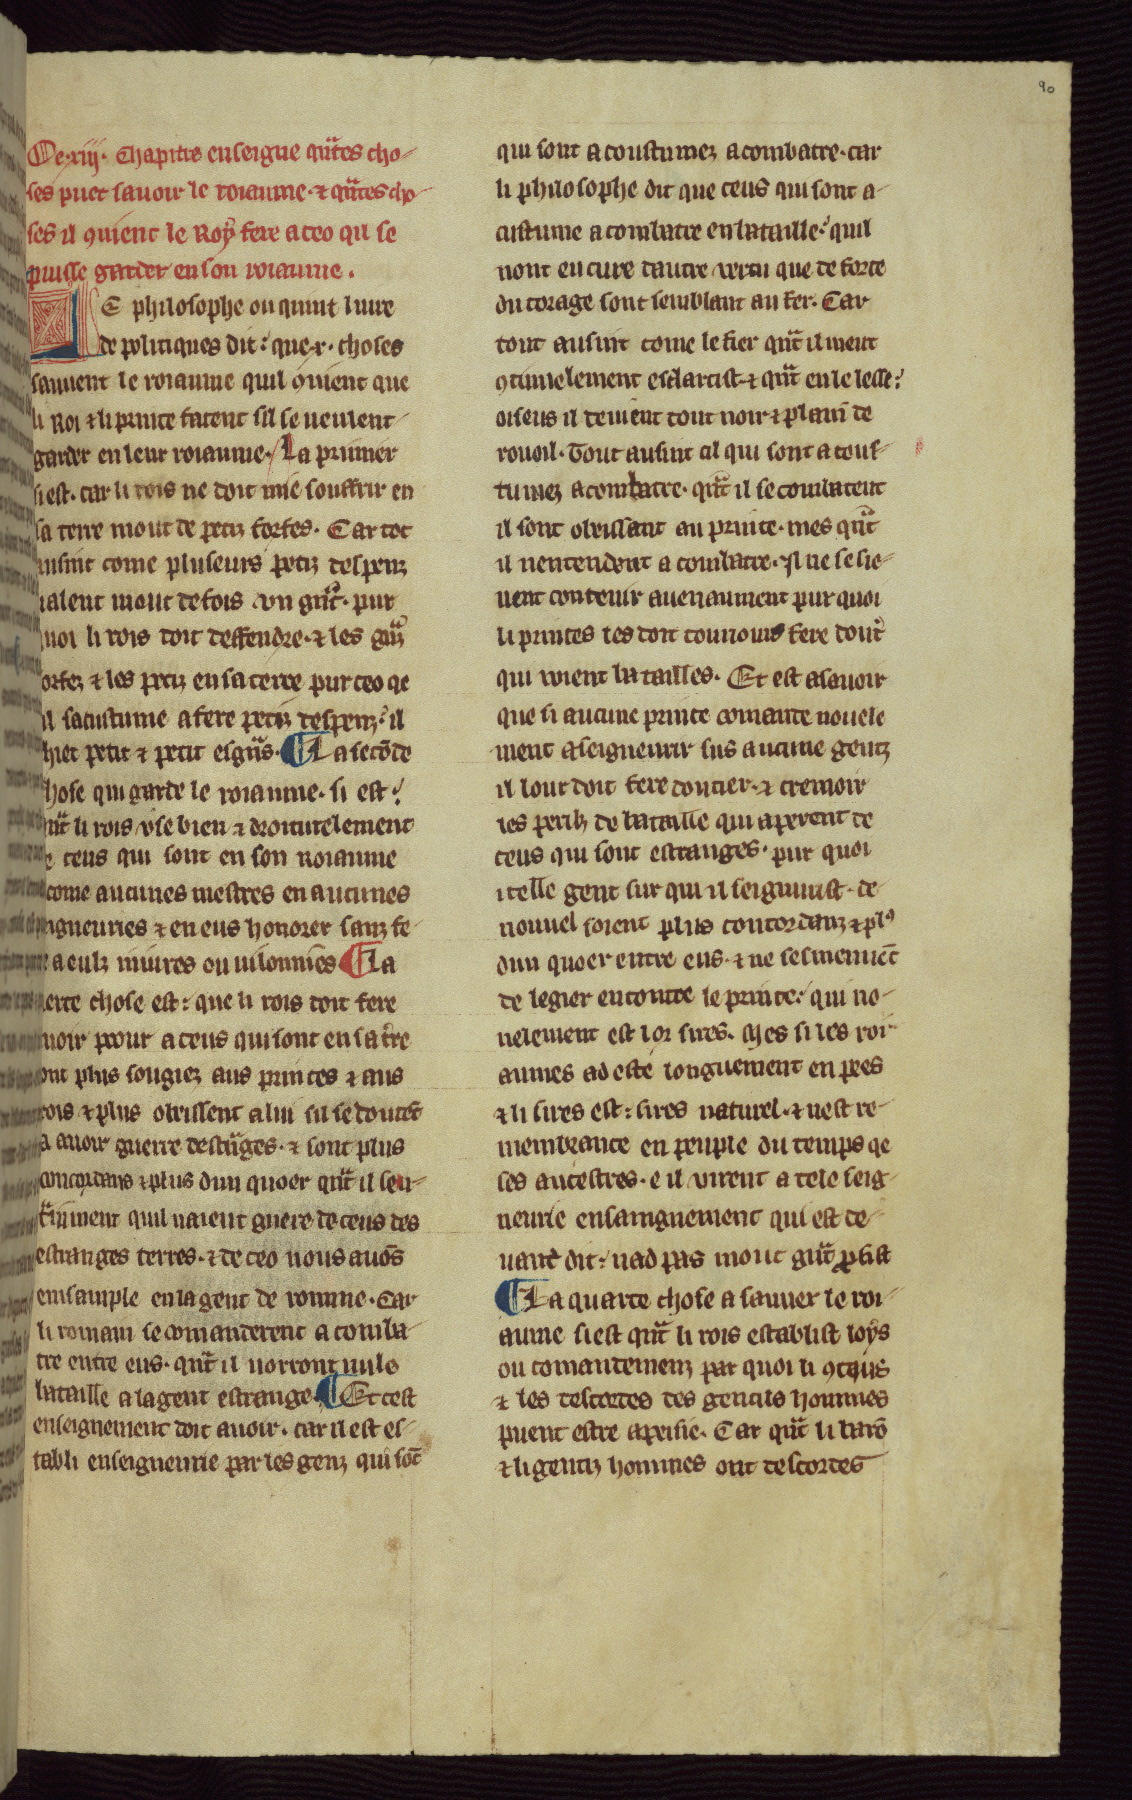 90
Ce xiij. Chapitre enseigne qũtes cho-
ses puet sauoir le roiaume. ⁊ qũtes cho-
ses il ꝯuient le Roy fere a ceo qil se
puisse garder en son roiaume.
LE philosophe ou quint liure
de politiques dit: que .x. choses
sauuent le roiaume quil ꝯuient que
li Roi ⁊ li prince facent sil se veulent
garder en leur roiaume. La primier
si est. car li rois ne doit mie souffrir en
sa terre mout de petiz forfes. Car tot
ausint come pluseurs petiz despenz
ualent mout de fois vn grãt. pur
quoi li rois doit deffendre. ⁊ les grãz
forfez ⁊ les petiz en sa terre pur ceo qe
il sacustume a fere petiz despenz: il
chiet petit ⁊ petit es grãs. ¶La secõde
chose qui garde le roiaume. si est:
qũt li rois vse bien ⁊ droiturelement
de ceus qui sont en son roiaume
come aucunes mestres en aucunes
seigneuries ⁊ en eus honorer sanz fe-
re a eulz iniures ou uilonnies ¶La
tierce chose est: que li rois doit fere
auoir poour a ceus qui sont en sa tr̃re
sont plus sougiez aus princes ⁊ aus
rois ⁊ plus obeissent a lui sil se doutẽt
a auoir guerre destrãges. ⁊ sont plus
concordans ⁊ plus dun quoer qũt il sen-
quil naient guere de ceus des
estranges terres. ⁊ de ceo nous auõs
ensample en la gent de romme. Car
li romain se comanderent a comba-
tre entre eus. qũt il norront nule
bataille a la gent estrange. ¶Et cest
enseignement doit auoir. car il est es-
tabli enseigneurie par les genz qui sõt
qui sont acoustumez a combatre. car
li philosophe dit que ceus qui sont a-
custume a combatre en bataille: quil
nont en cure dautre vertu que de force
du corage sont semblant au fer. Car
tout ausint come le fier qũt il ment
ꝯtinuelement esclarcist. ⁊ qũt en le lesse:
oiseus il deuient tout noir ⁊ plain de
rouoil. Tout ausint cil qui sont acous-
tumez a combatre. qũt il se combatent
il sont obeissant au prince. mes qũt
il nentendent a combatre. Il ne se sie-
uent contenir auenaument pur quoi
li princes les doit touriours fere doutr̃
qui voient batailles. Et est a sauoir
que si aucune prince comance nouele
ment a seigneurir sus aucune gentz
il lour doit fere doutier. ⁊ cremoir
les perilz de bataille qui aperent de
ceus qui sont estranges. pur quoi
icelle gent sur qui il seignurist. de
nouuel soient plus concordanz ⁊ plꝰ
dun quoer entre eus. ⁊ ne sesmeuuẽt
de legier encontre le prince: qui no-
uelement est lor sires. Mes si les roi-
aumes ad este longuement en pees
⁊ li sires est: sires naturel. ⁊ nest re-
membrance en peuple du temps qe
ses ancestres. e il virent a tele seig-
neurie ensaingnement qui est de-
uant dit: nad pas mout grãt ꝓfist
¶La quarte chose a sauuer le roi-
aume si est qũt li rois establist loys
ou comandemenz par quoi li ꝯtens
⁊ les descordes des gentils hommes
puent estre apeisie. Car qũt li barõ
⁊ li gentiz hommes ont descordes